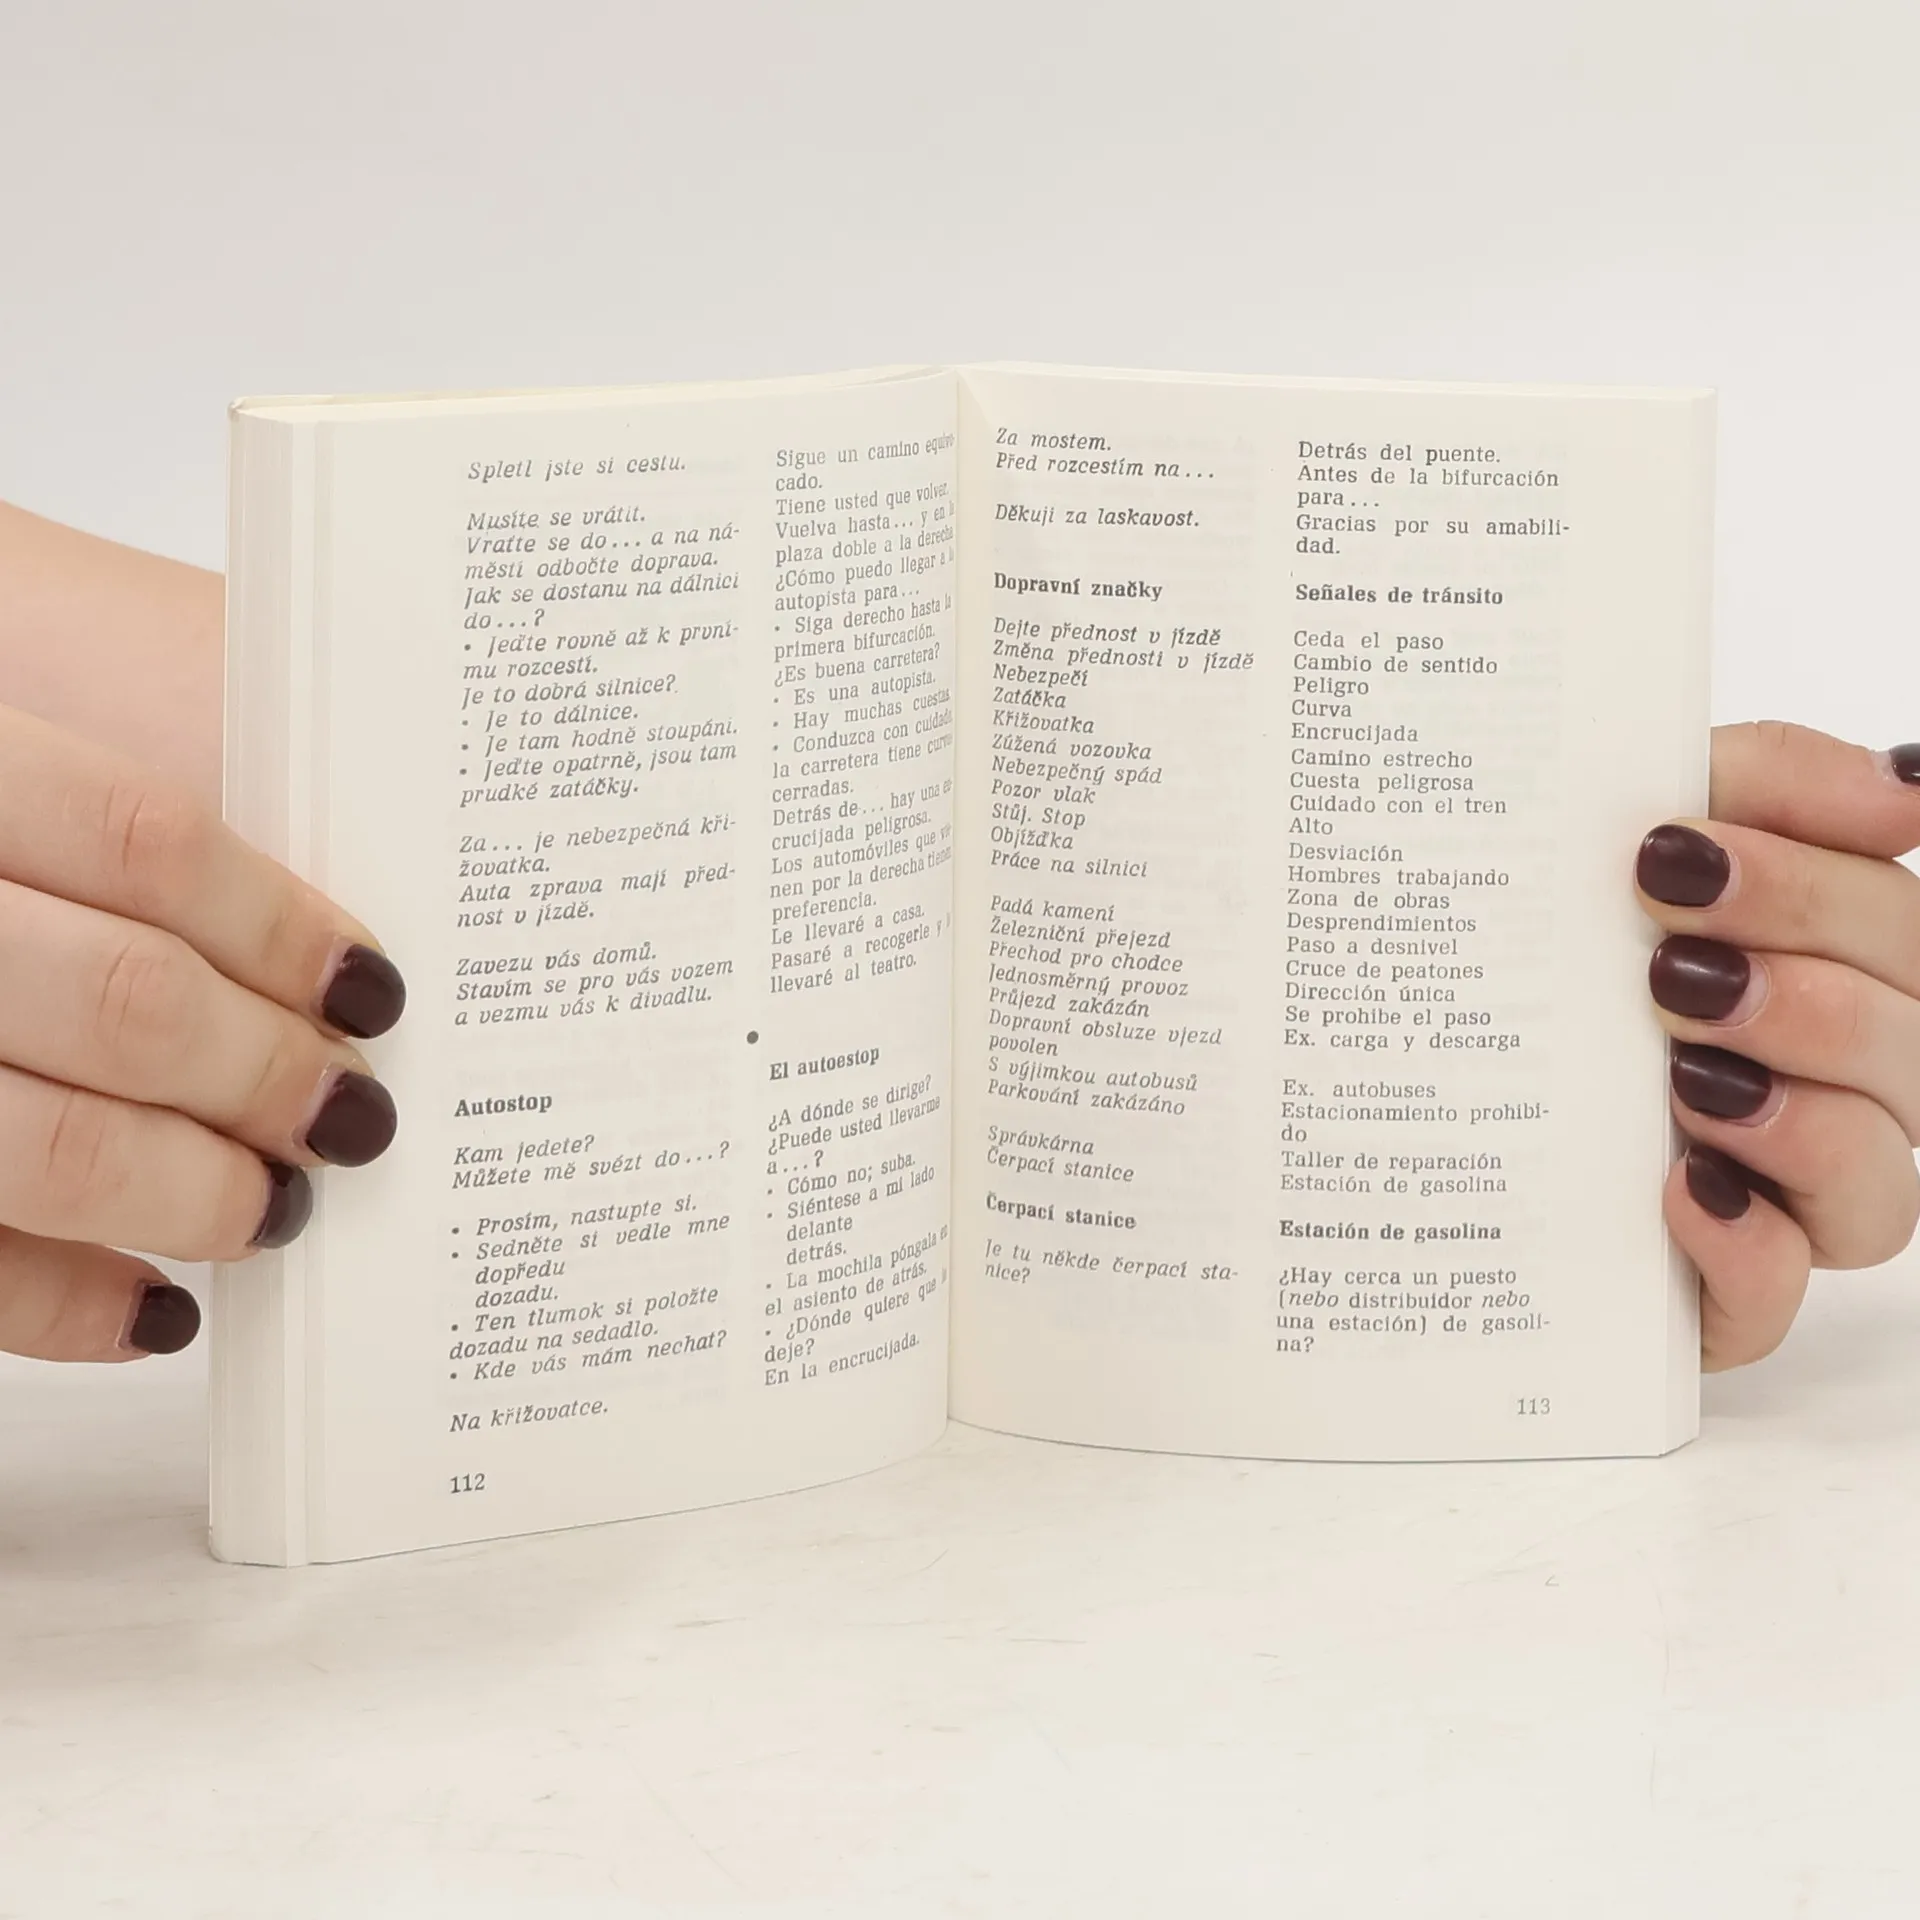 Spletl jste si cestu.
Musíte se vrátit.
Vraťte se do... a na ná-
městí odbočte doprava.
Jak se dostanu na dálnici
do...?
• Jeďte rovně až k první-
mu rozcestí.
Je to dobrá silnice?
• Je to dálnice.
• Je tam hodně stoupání.
• Jeďte opatrně, jsou tam
prudké zatáčky.
Za... je nebezpečná kři-
žovatka.
Auta zprava mají před-
nost v jízdě.
Zavezu vás domů.
Stavím se pro vás vozem
a vezmu vás k divadlu.
Autostop
Kam jedete?
Můžete mě svézt do...?
• Prosím, nastupte si.
• Sedněte si vedle mne
dopředu
dozadu.
• Ten tlumok si položte
dozadu na sedadlo.
• Kde vás mám nechat?
Na křižovatce.
112
Sigue un camino equivo-
cado.
Tiene usted que volver.
Vuelva hasta... y en
plaza doble a la derecha
¿Cómo puedo llegar a
autopista para...
• Siga derecho hasta la
primera bifurcación.
¿Es buena carretera?
• Es una autopista.
• Hay muchas cuestas
• Conduzca con cuidado
la carretera tiene curvas
cerradas.
Detrás de... hay una
crucijada peligrosa.
Los automóviles que
nen por la derecha tienen
preferencia.
Le llevaré a casa.
Pasaré a recogerle y
llevaré al teatro.
El autoestop
¿A dónde se dirige?
¿Puede usted llevarme
a...?
• Cómo no; suba.
• Siéntese a mi lado
delante
detrás.
• La mochila póngala en
el asiento de atrás.
• ¿Dónde quiere que
deje?
En la encrucijada.
Za mostem.
Před rozcestím na...
Děkuji za laskavost.
Dopravní značky
Dejte přednost v jízdě
Změna přednosti v jízdě
Nebezpečí
Zatáčka
Křižovatka
Zúžená vozovka
Nebezpečný spád
Pozor vlak
Stůj. Stop
Objížďka
Práce na silnici
Padá kamení
Železniční přejezd
Přechod pro chodce
Jednosměrný provoz
Průjezd zakázán
Dopravní obsluze vjezd
povolen
S výjimkou autobusů
Parkování zakázáno
Správkárna
Čerpací stanice
Čerpací stanice
Je tu někde čerpací sta-
nice?
Detrás del puente.
Antes de la bifurcación
para...
Gracias por su amabili-
dad.
Señales de tránsito
Ceda el paso
Cambio de sentido
Peligro
Curva
Encrucijada
Camino estrecho
Cuesta peligrosa
Cuidado con el tren
Alto
Desviación
Hombres trabajando
Zona de obras
Desprendimientos
Paso a desnivel
Cruce de peatones
Dirección única
Se prohibe el paso
Ex. carga y descarga
Ex. autobuses
Estacionamiento prohibi-
do
Taller de reparación
Estación de gasolina
Estación de gasolina
¿Hay cerca un puesto
(nebo distribuidor nebo
una estación) de gasoli-
na?
113